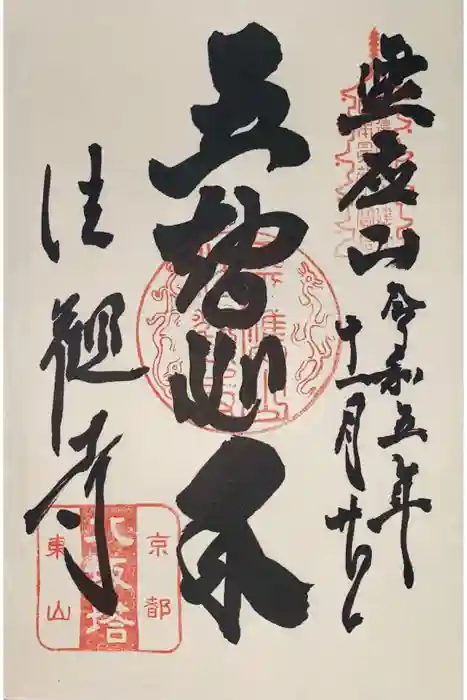 霊応山
令和五年
十一月
五智如来
法観寺
京都
八坂塔
東山